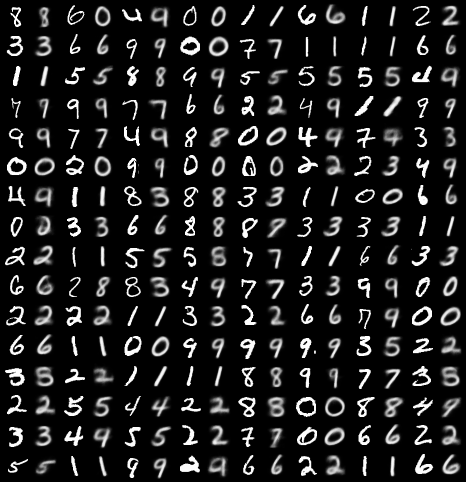 8 8 6 0 4 9 0 0 1 1 6 6 1 1 2 2
3 3 6 6 9 9 0 0 7 7 1 1 1 1 6 6
1 1 5 5 8 8 9 9 5 5 5 5 5 5 4 9
7 9 9 9 7 7 6 6 2 2 4 9 1 1 9 9
9 9 7 7 4 9 8 8 0 0 4 9 7 9 3 3
0 0 2 0 9 9 0 0 0 0 2 2 2 3 4 9
4 9 1 1 8 3 8 8 3 3 1 1 0 0 6 6
0 0 3 3 6 6 8 8 8 9 3 3 3 3 1 1
2 2 1 1 5 5 5 8 7 7 1 1 6 6 3 3
6 6 2 8 8 3 4 9 7 7 3 3 9 9 0 0
2 2 2 2 1 1 3 3 2 2 6 6 7 9 0 0
6 6 1 1 0 0 9 9 9 9 9 9 3 5 2 2
3 5 2 2 1 1 1 1 8 8 9 9 7 7 3 5
2 2 5 5 4 4 2 2 8 8 0 0 8 8 4 9
3 3 4 9 5 5 2 2 7 7 0 0 6 6 2 2
5 5 1 1 9 9 2 9 6 6 2 2 1 1 6 6